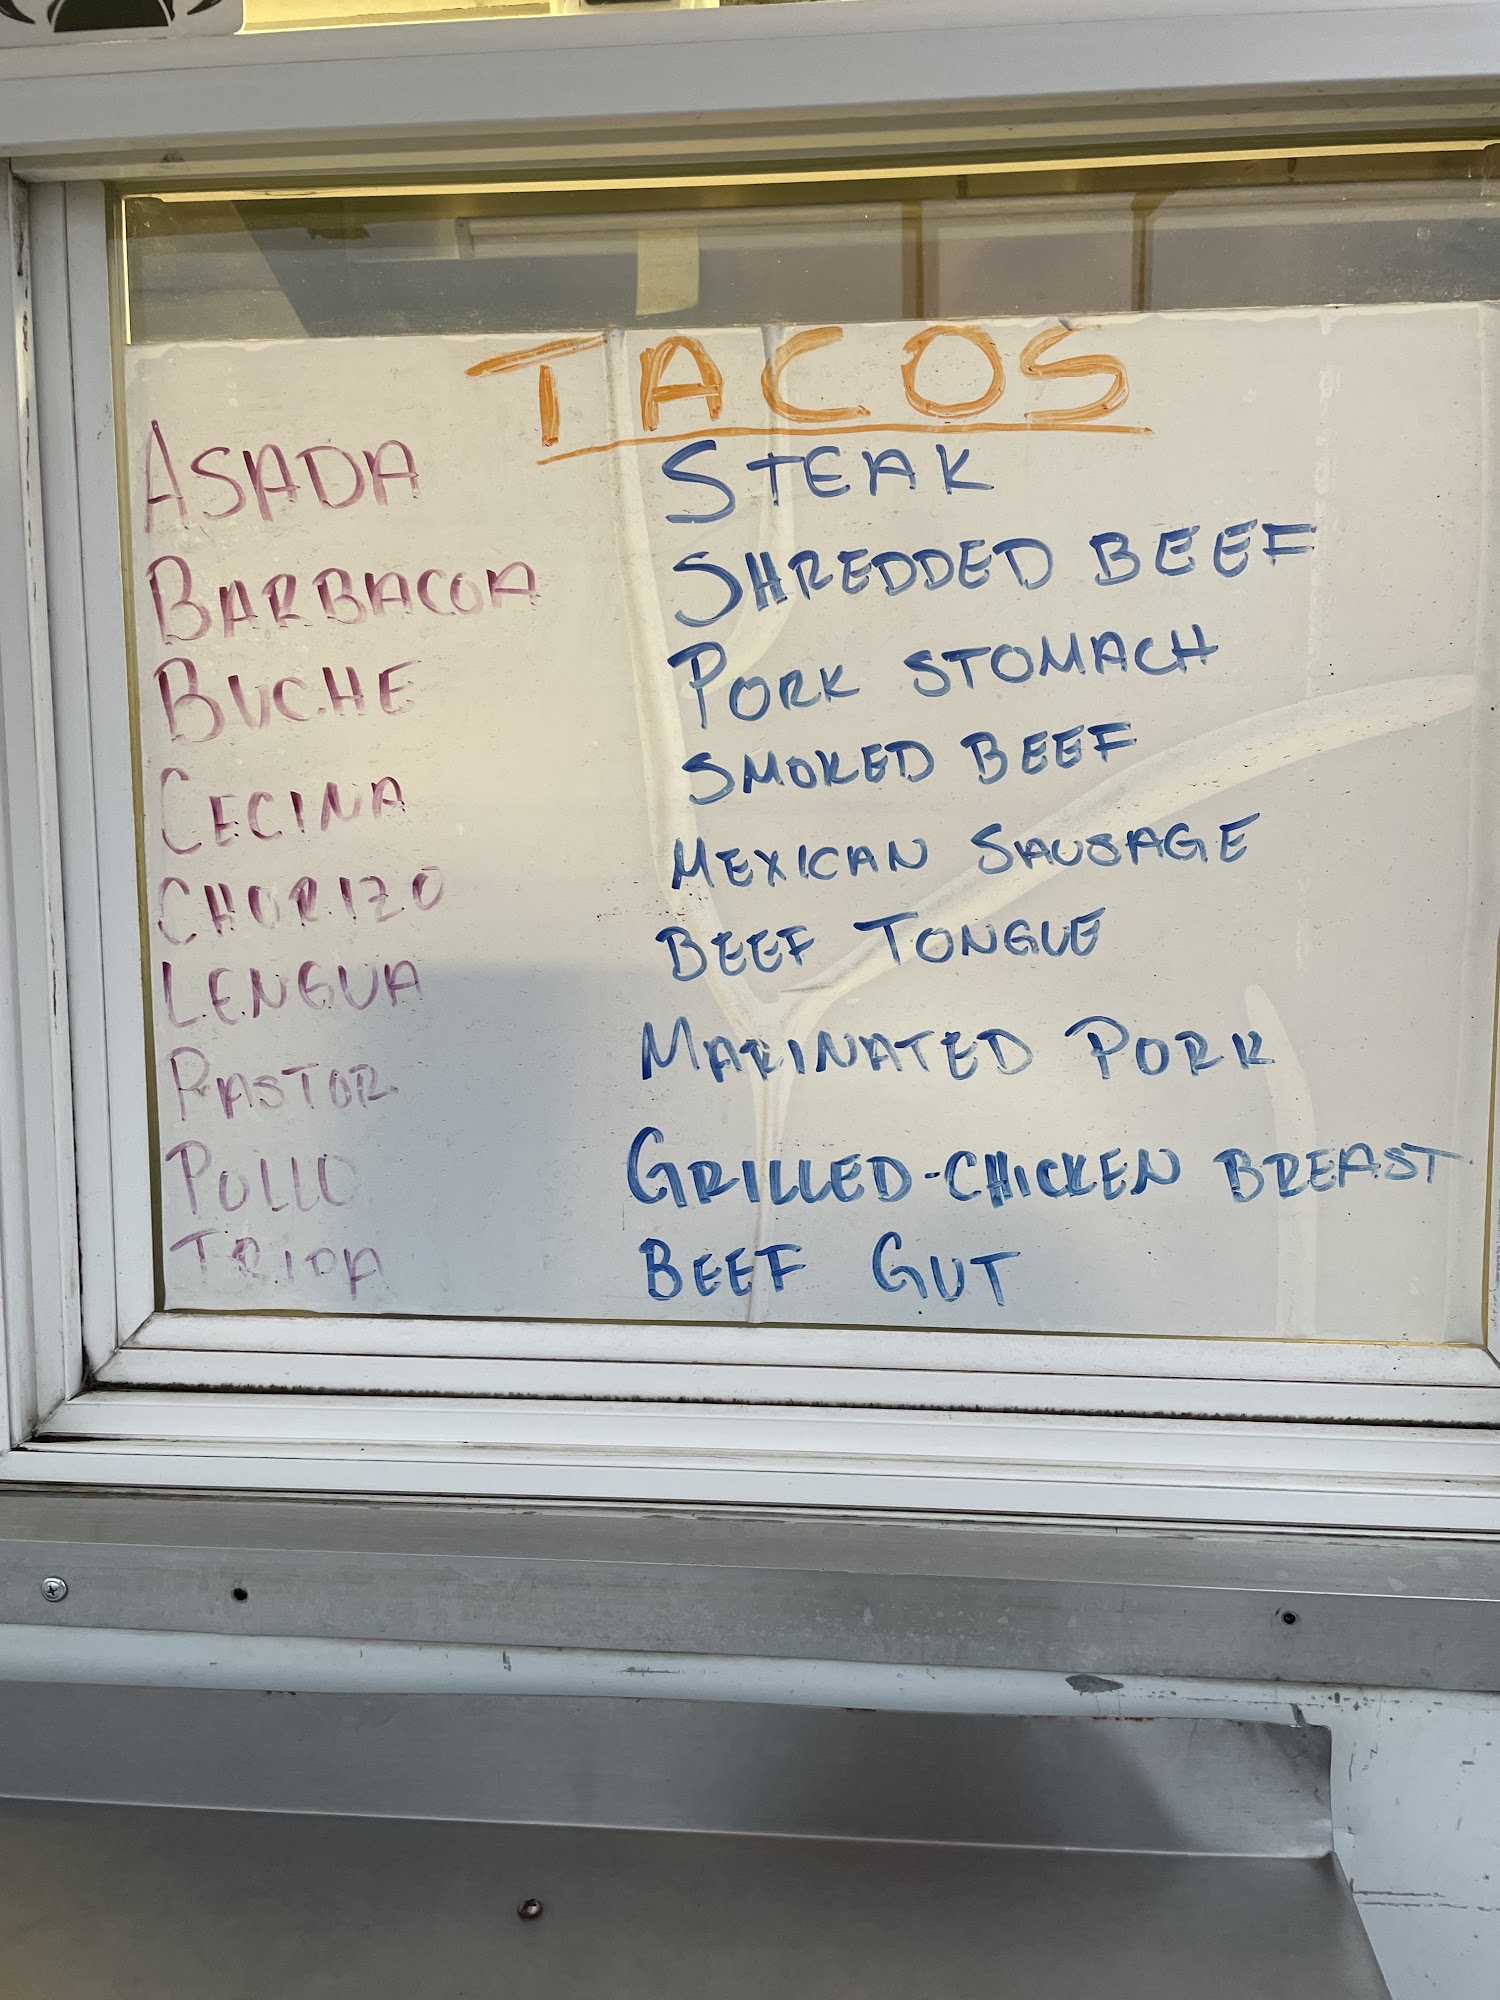 TACOS
ASADA STEAK
BARBACOA SHREDDED BEEF
BUCHE PORK STOMACH
CECINA SMOKED BEEF
CHORIZO MEXICAN SAUSAGE
LENGUA BEEF TONGUE
PASTOR MARINATED PORK
POLLO GRILLED-CHICKEN BREAST
TRIPA BEEF GUT